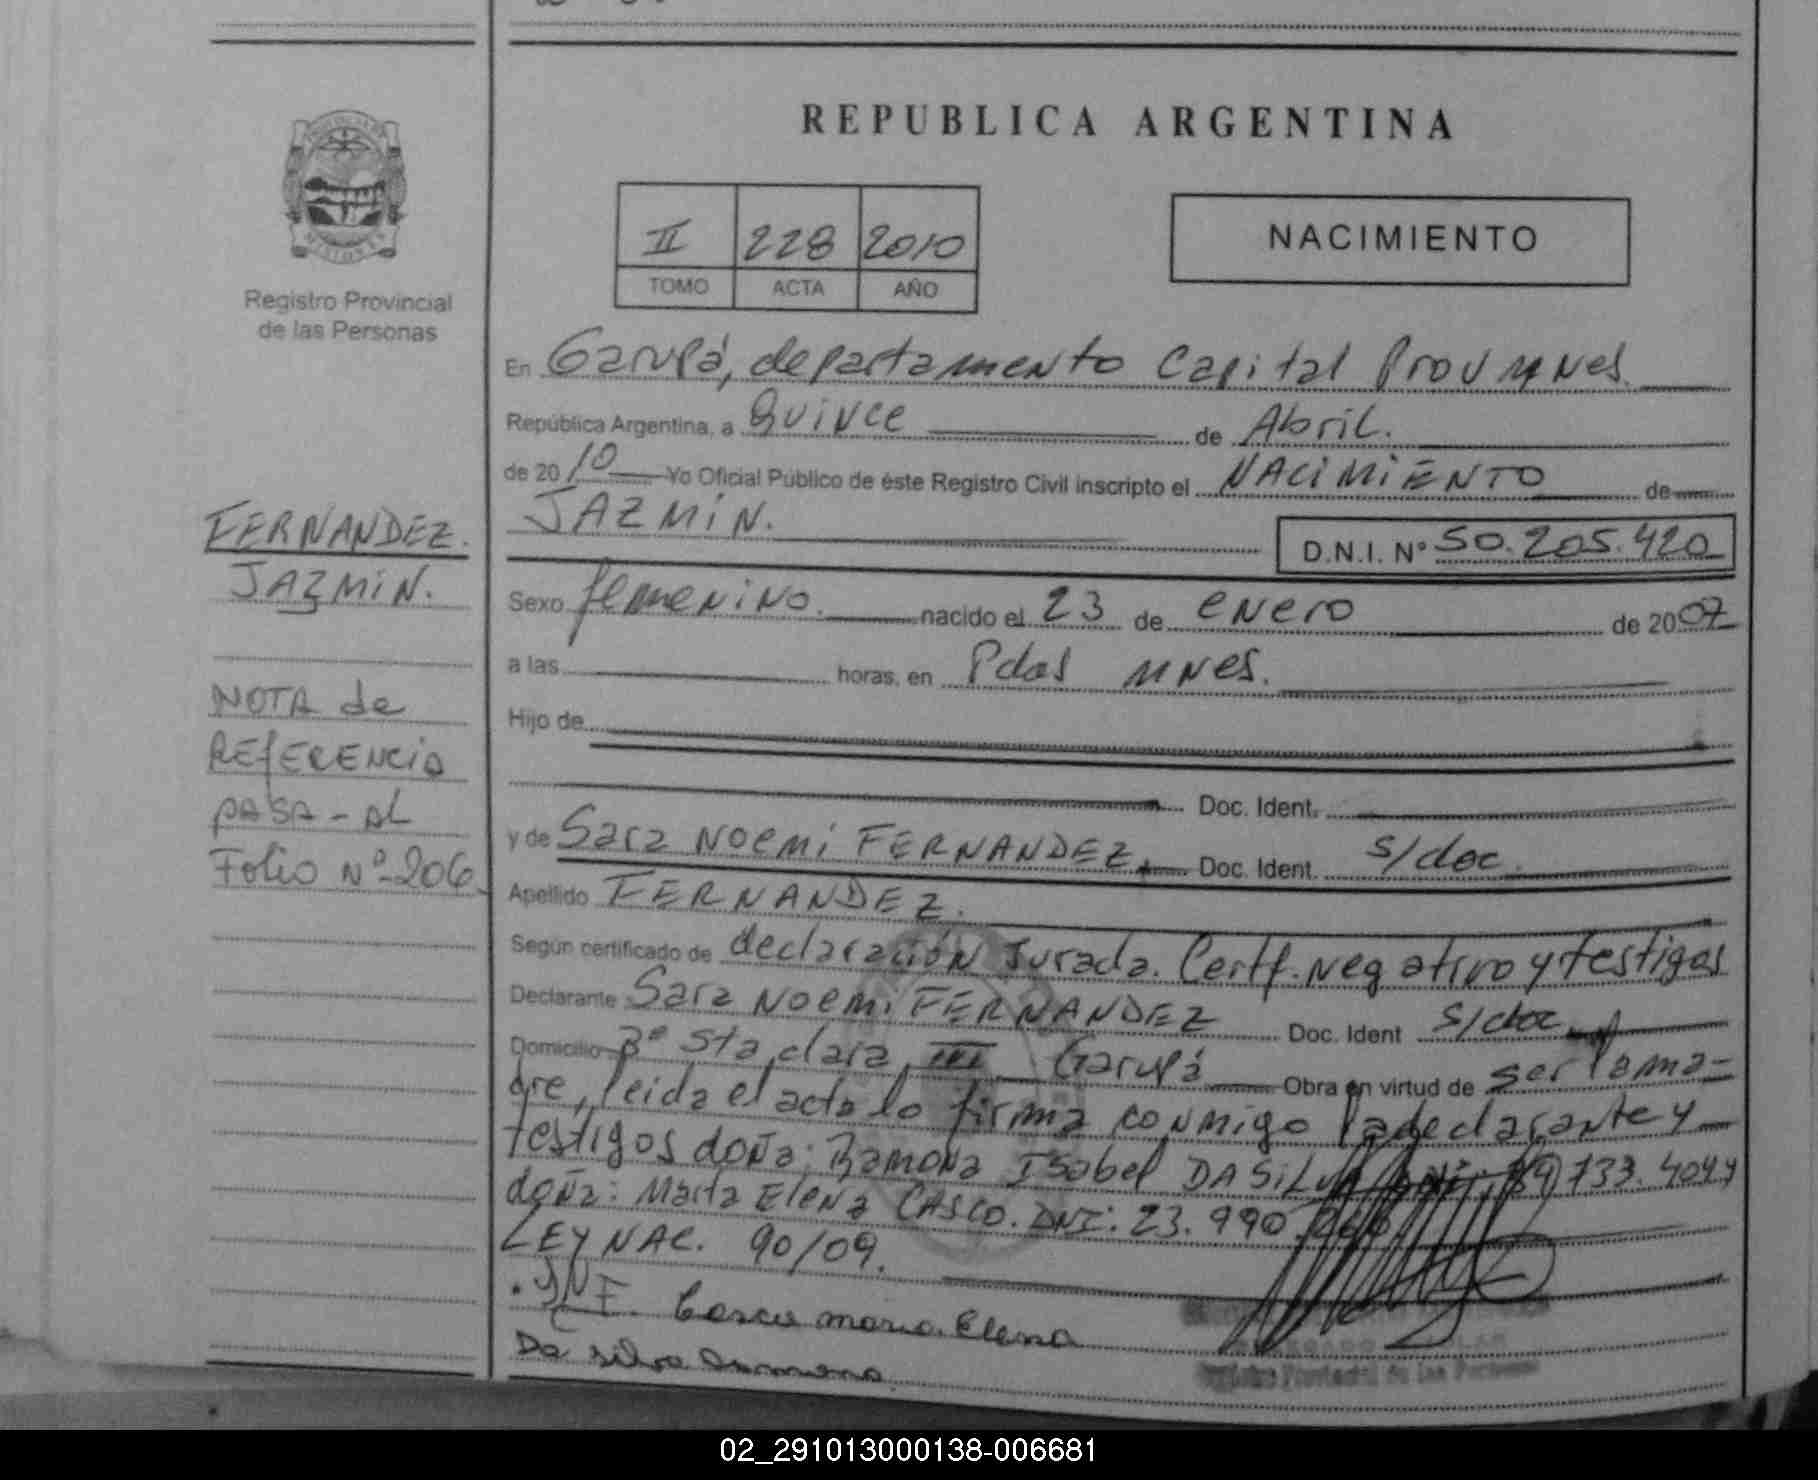 REPUBLICA ARGENTINA
II 228 2010
TOMO ACTA AÑO
NACIMIENTO
Registro Provincial
de las Personas
FERNANDEZ.
JAZMIN.
NOTA de
REFERENCIA
PASA - AL
Folio Nº 206
En Garupá, departamento Capital Prov Mnes.
República Argentina, a Quince de Abril.
de 2010 Yo Oficial Público de éste Registro Civil inscripto el NACIMIENTO de
JAZMIN. D.N.I. Nº 50.205.420
Sexo femenino. nacido el 23 de enero de 2007
a las horas, en Pdas Mnes.
Hijo de
Doc. Ident.
y de Sara Noemi FERNANDEZ. Doc. Ident. s/doc.
Apellido FERNANDEZ.
Según certificado de declaración Jurada. Certf. Negativo y testigos
Declarante Sara Noemi FERNANDEZ Doc. Ident s/doc.
Domicilio Bº Sta clara III Garupá Obra en virtud de ser la ma-
dre, leida el acta lo firma conmigo la declarante y
testigos doña: Ramona Isabel DA SILVA 733.404 y
doña: Marta Elena CASCO. DNI: 23.990
LEY NAC. 90/09.
Elena
Da silva
Registro Provincial de las Personas
02_291013000138-006681